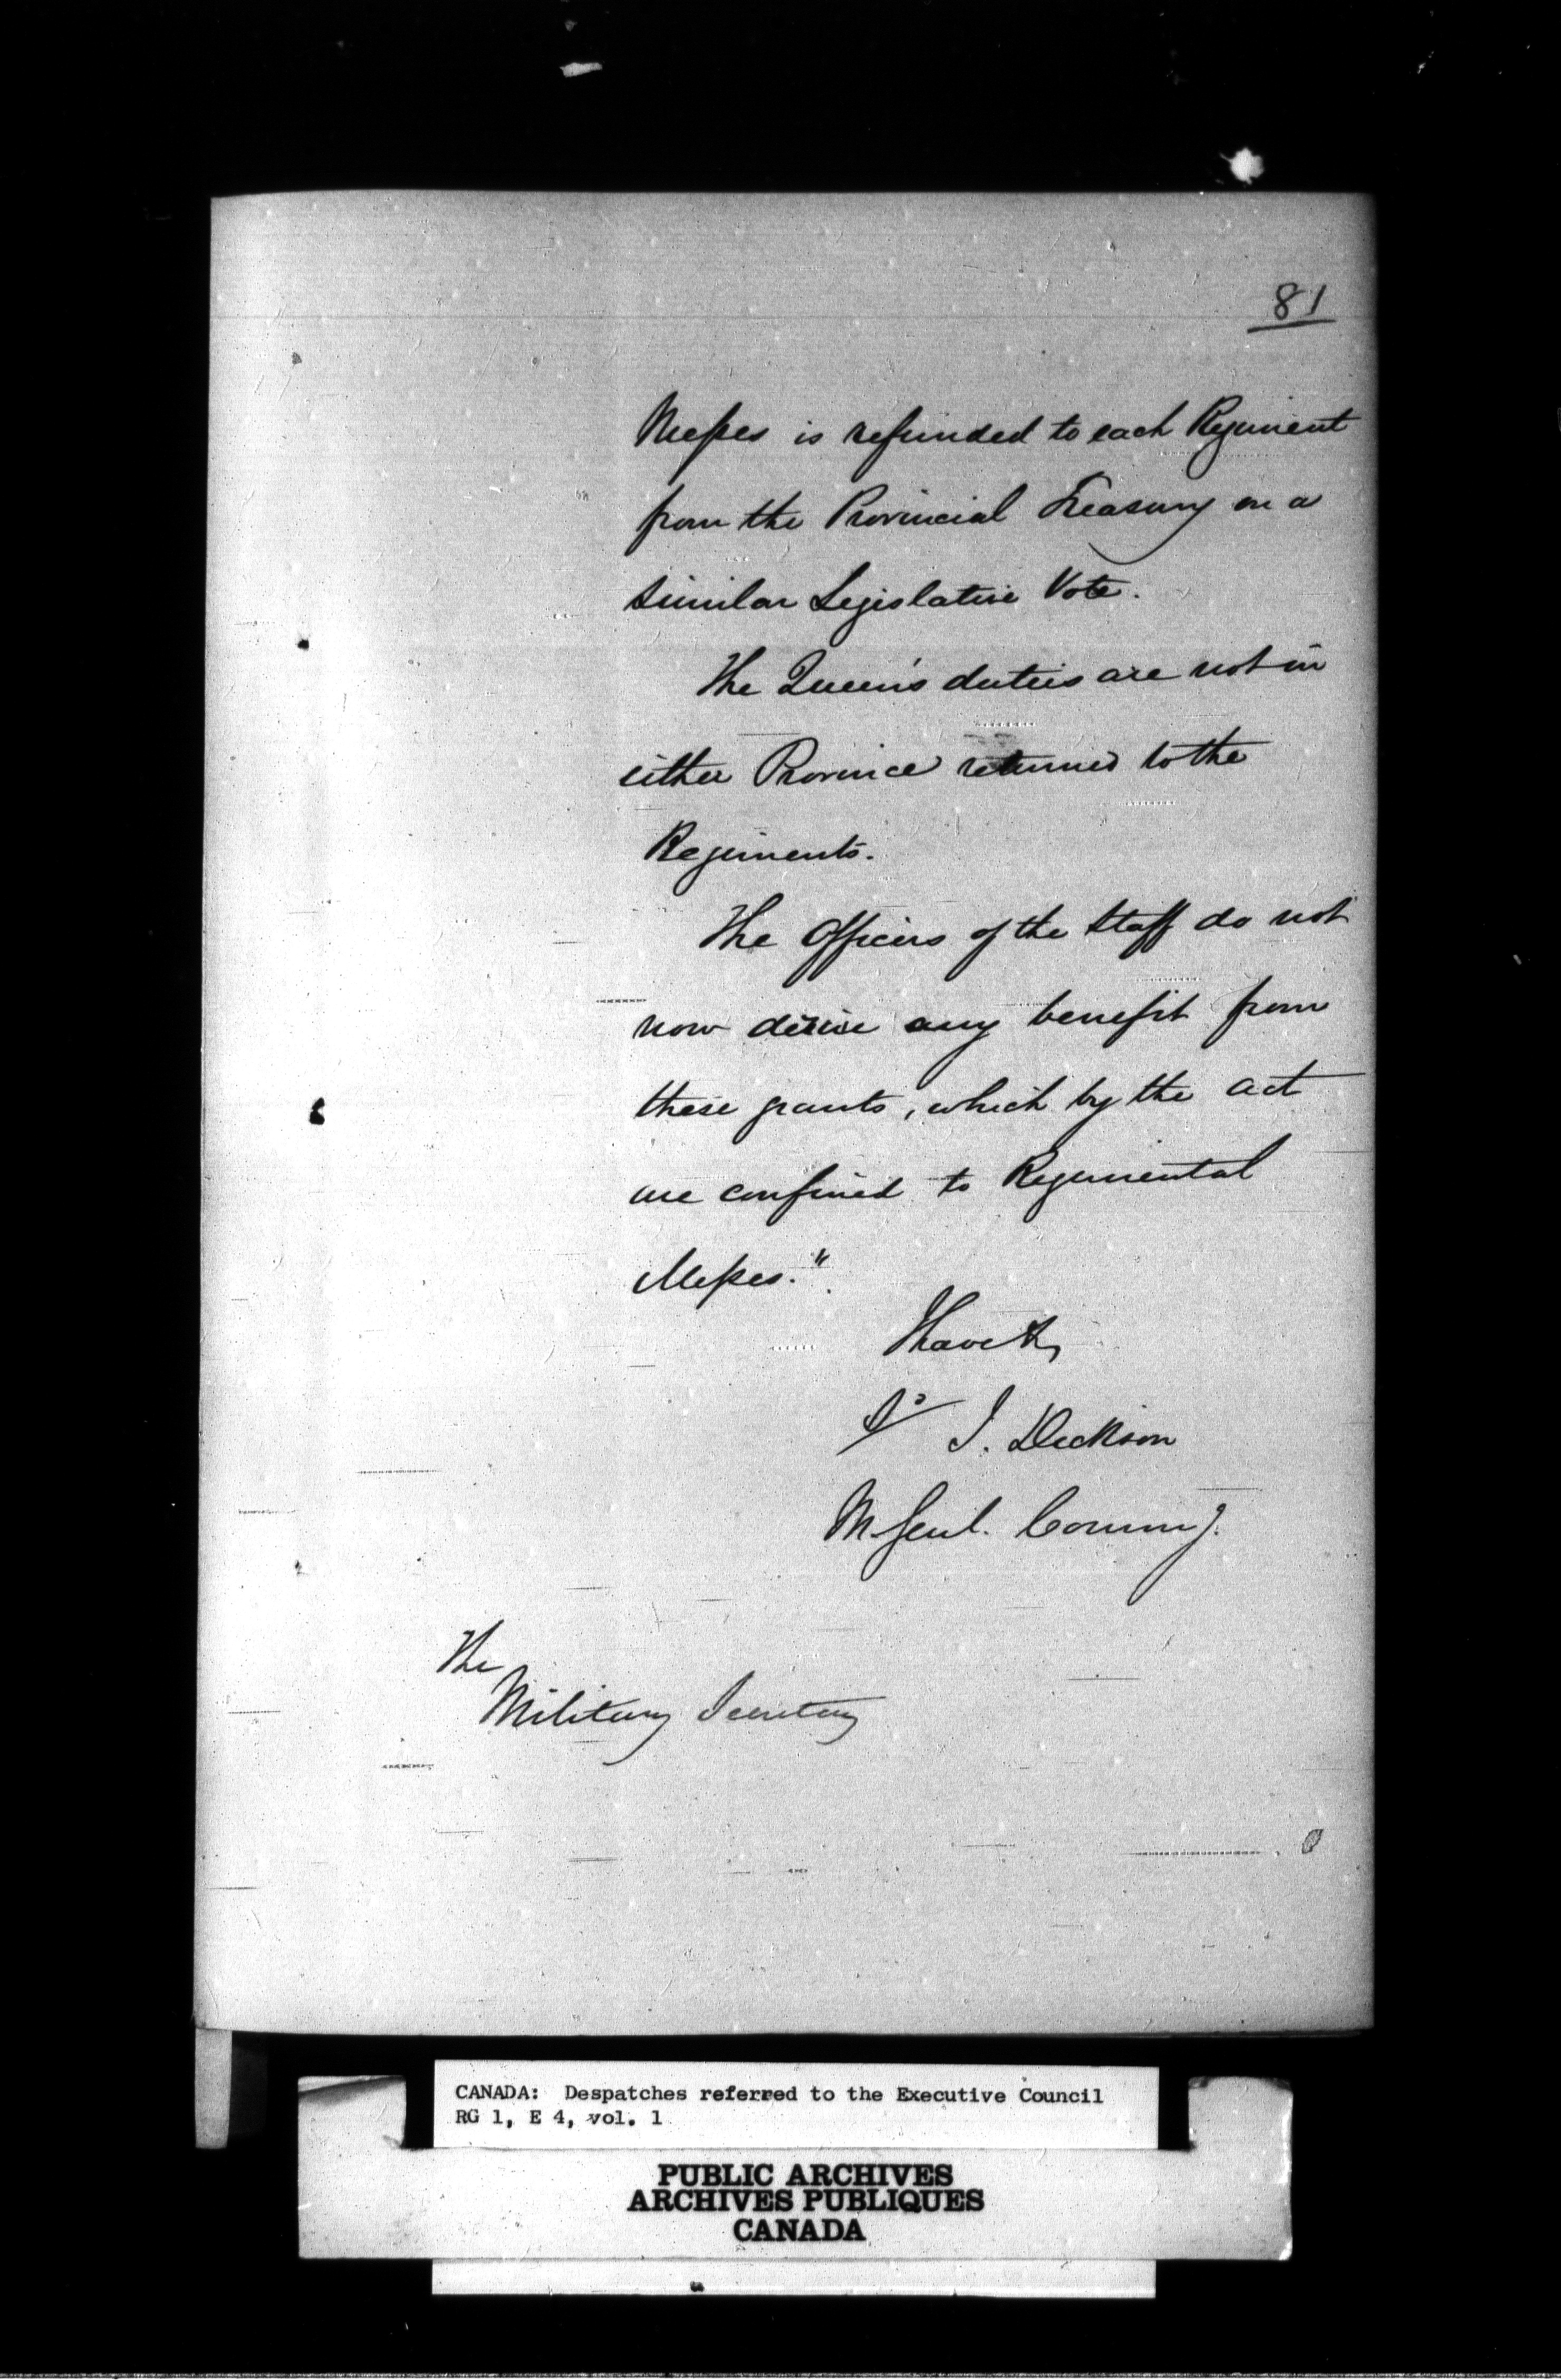 81
Messes is refunded to each Regiment
from the Provincial Treasury on a
similar Legislative Vote.
The Queen's duties are not in
either Province returned to the
Regiments.
The Officers of the Staff do not
now derive any benefit from
these grants, which by the act
are confined to Regimental
Messes."
I have &c
J. Dickson
M. Genl. Commg.
The
Military Secretary
CANADA: Despatches referred to the Executive Council
RG 1, E 4, vol. 1
PUBLIC ARCHIVES
ARCHIVES PUBLIQUES
CANADA